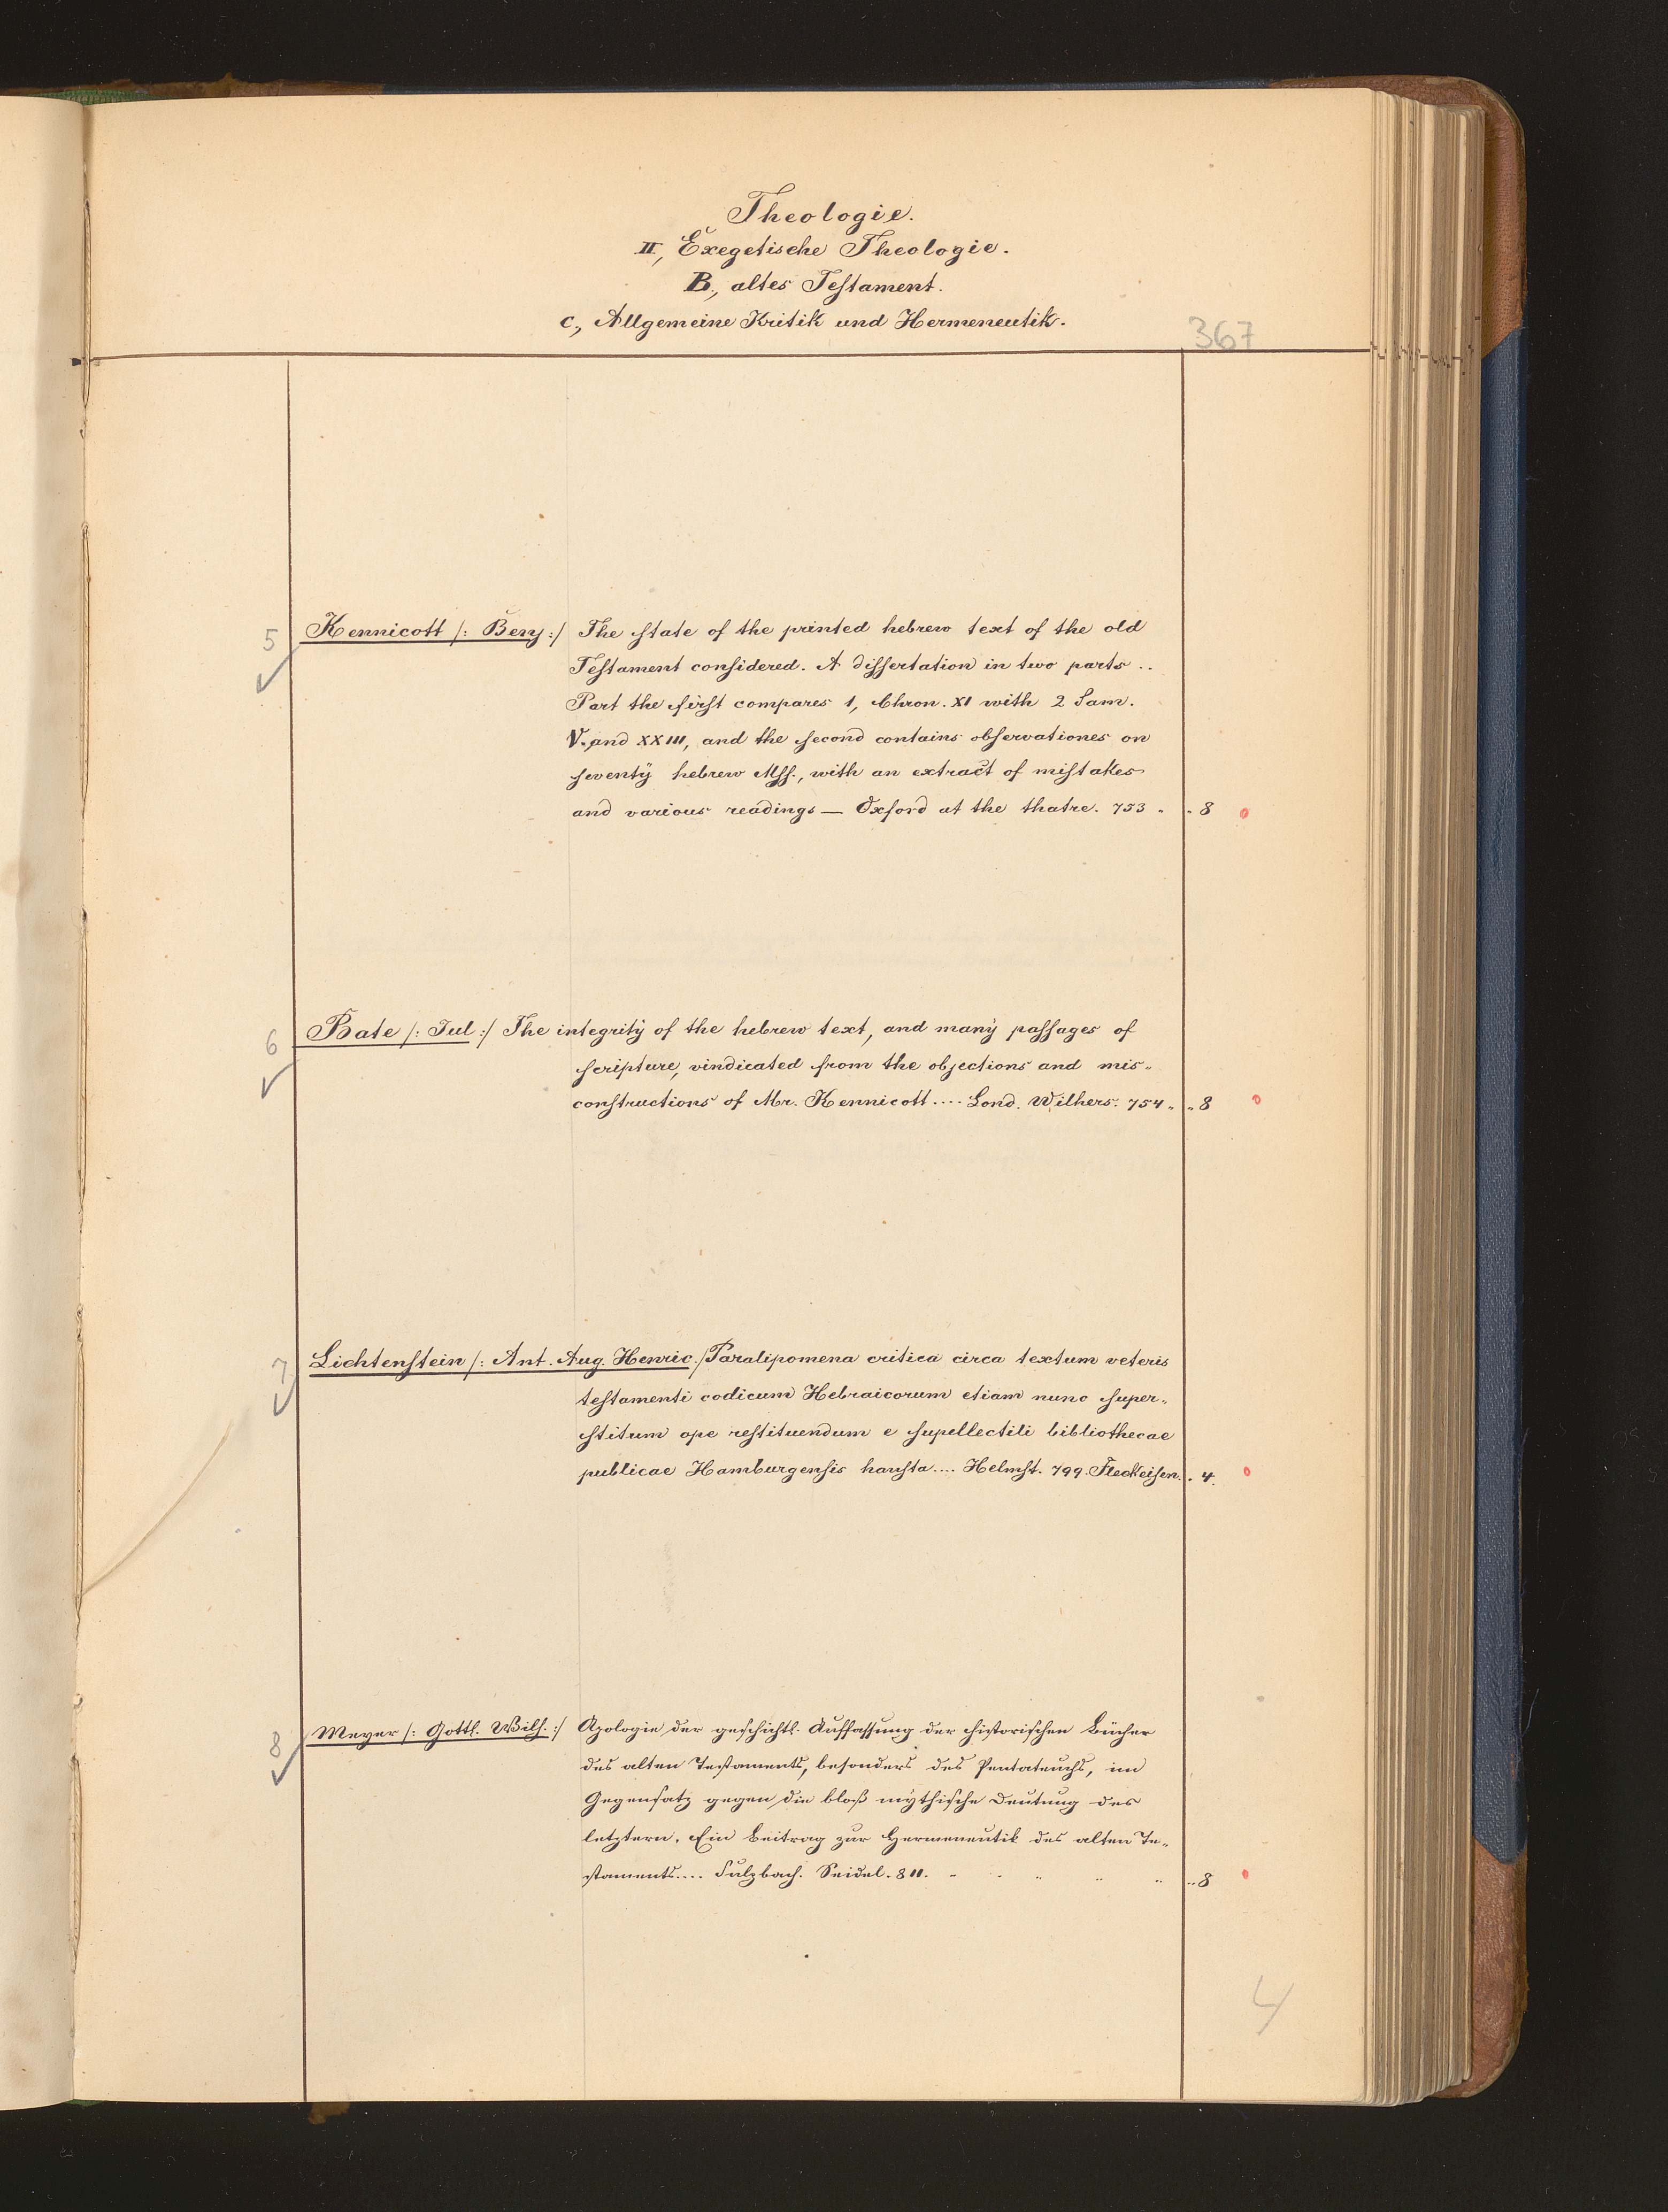 Theologie.
II, Exegetische Theologie.
B., altes Testament.
c., Allgemeine Kritik und Hermeneutik.
367
5 Kennicott /: Benj :/ The state of the printed hebrew text of the old
Testament considered. A dissertation in two parts ..
Part the first compares 1, Chron. XI with 2 Sam.
V. and XXIII, and the second contains observationes on
seventy hebrew Mss., with an extract of mistakes
and various readings — Oxford at the thatre. 753 . . 8 0
6 Bate /: Jul :/ The integrity of the hebrew text, and many passages of
scripture, vindicated from the objections and mis-
constructions of Mr. Kennicott .... Lond. Wilhers. 754 . . 8 0
7 Lichtenstein /: Ant. Aug. Henric. / Paralipomena critica circa textum veteris
testamenti codicum Hebraicorum etiam nunc super-
stitum ope restituendum e supellectili bibliothecae
publicae Hamburgensis hausta .... Helmst. 799. Fleckeisen. . 4. 0
8 Meyer /: Gottl. Wilh. :/ Apologie der geschichtl. Auffassung der historischen Bücher
des alten Testaments, besonders des Pentateuchs, im
Gegensatz gegen die bloß mythische Deutung des
letztern. Ein Beitrag zur Hermeneutik des alten Te-
staments .... Sulzbach. Seidel. 811. . . . . . .. 8 0
4